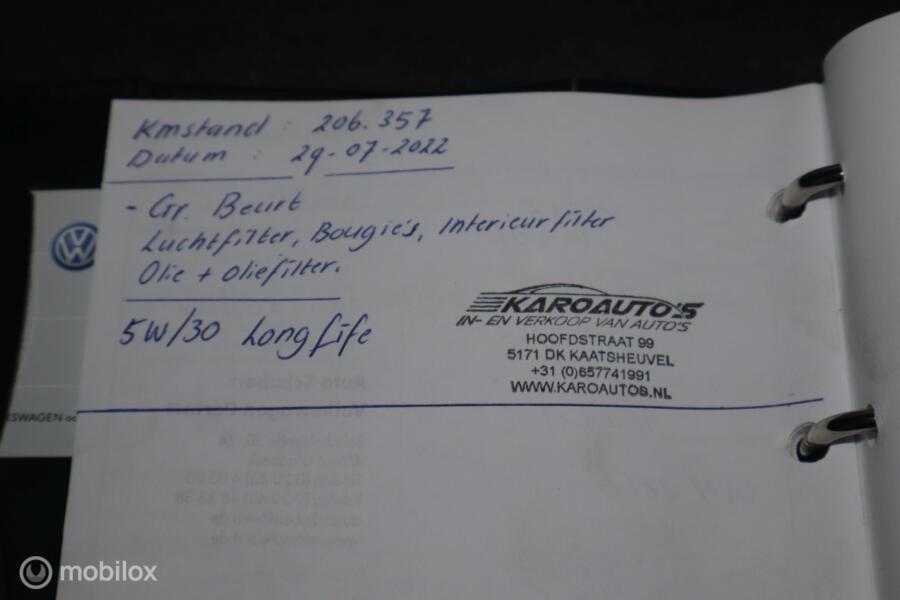 Kmstand : 206.357
Datum : 29-07-2022
- Gr. Beurt
Luchtfilter, Bougie's, Interieurfilter
Olie + oliefilter.
5W/30 Longlife
KAROAUTO'S
IN- EN VERKOOP VAN AUTO'S
HOOFDSTRAAT 99
5171 DK KAATSHEUVEL
+31 (0)657741991
WWW.KAROAUTOS.NL
VW
mobilox